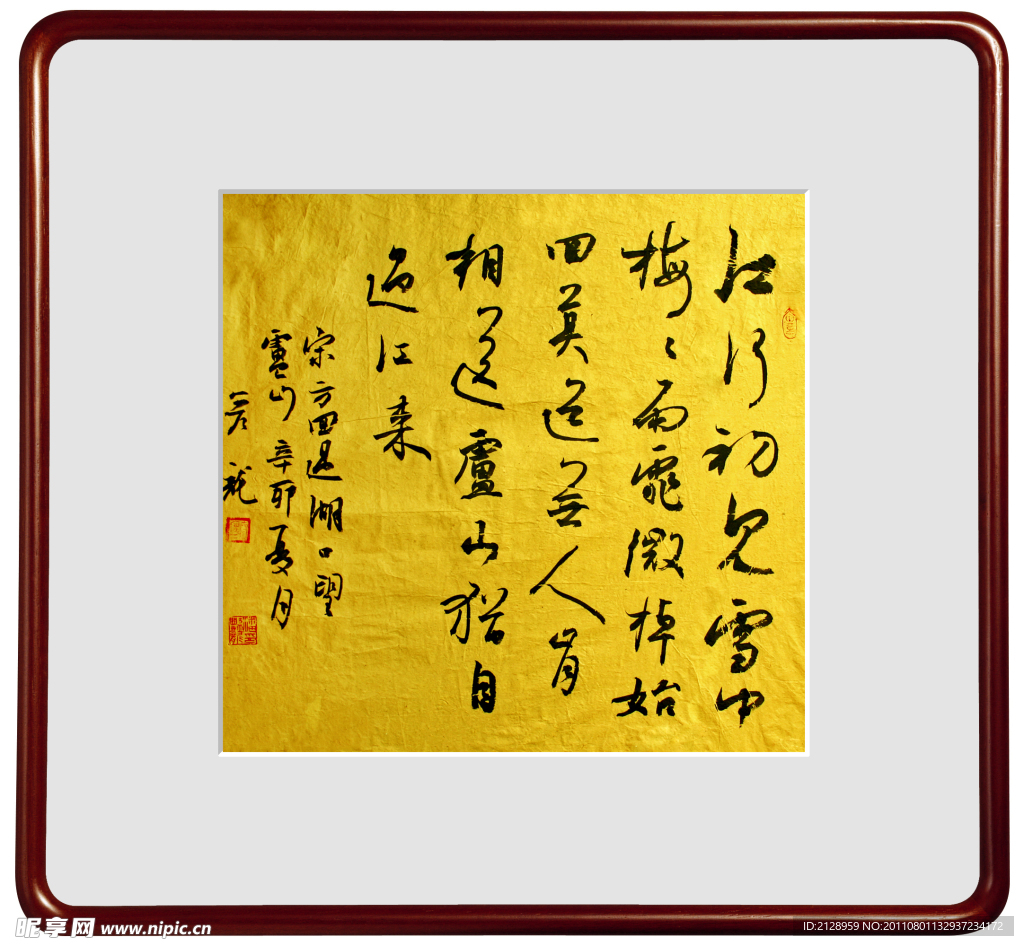 江行初見雪中
梅梅雨霏微棹始
回莫道無人肯
相送廬山猶自
過江来
宋方回過湖口望
廬山辛卯夏月
岩龍
昵享网 www.nipic.cn
ID:2128959 NO:20110801132937234172